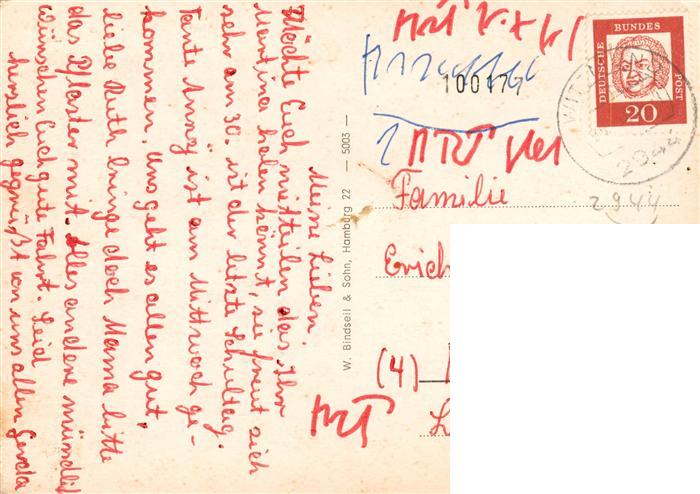 Meine Lieben,
Möchte Euch mitteilen das Ihr
Martina holen könnt, sie freut sich
sehr am 30. ist der letzte Schultag.
Tante Änne ist am Mittwoch ge-
kommen. Uns geht es allen gut,
liebe Ruth bringe doch Mama bitte
das Pflaster mit. Alles andere mündlich
wünschen Euch gute Fahrt. Seid
herzlich gegrüßt von uns allen Gerda
W. Bindseil & Sohn, Hamburg 22 — 5003 —
100177
DEUTSCHE BUNDESPOST
20
2944
Familie
Erich
(4)